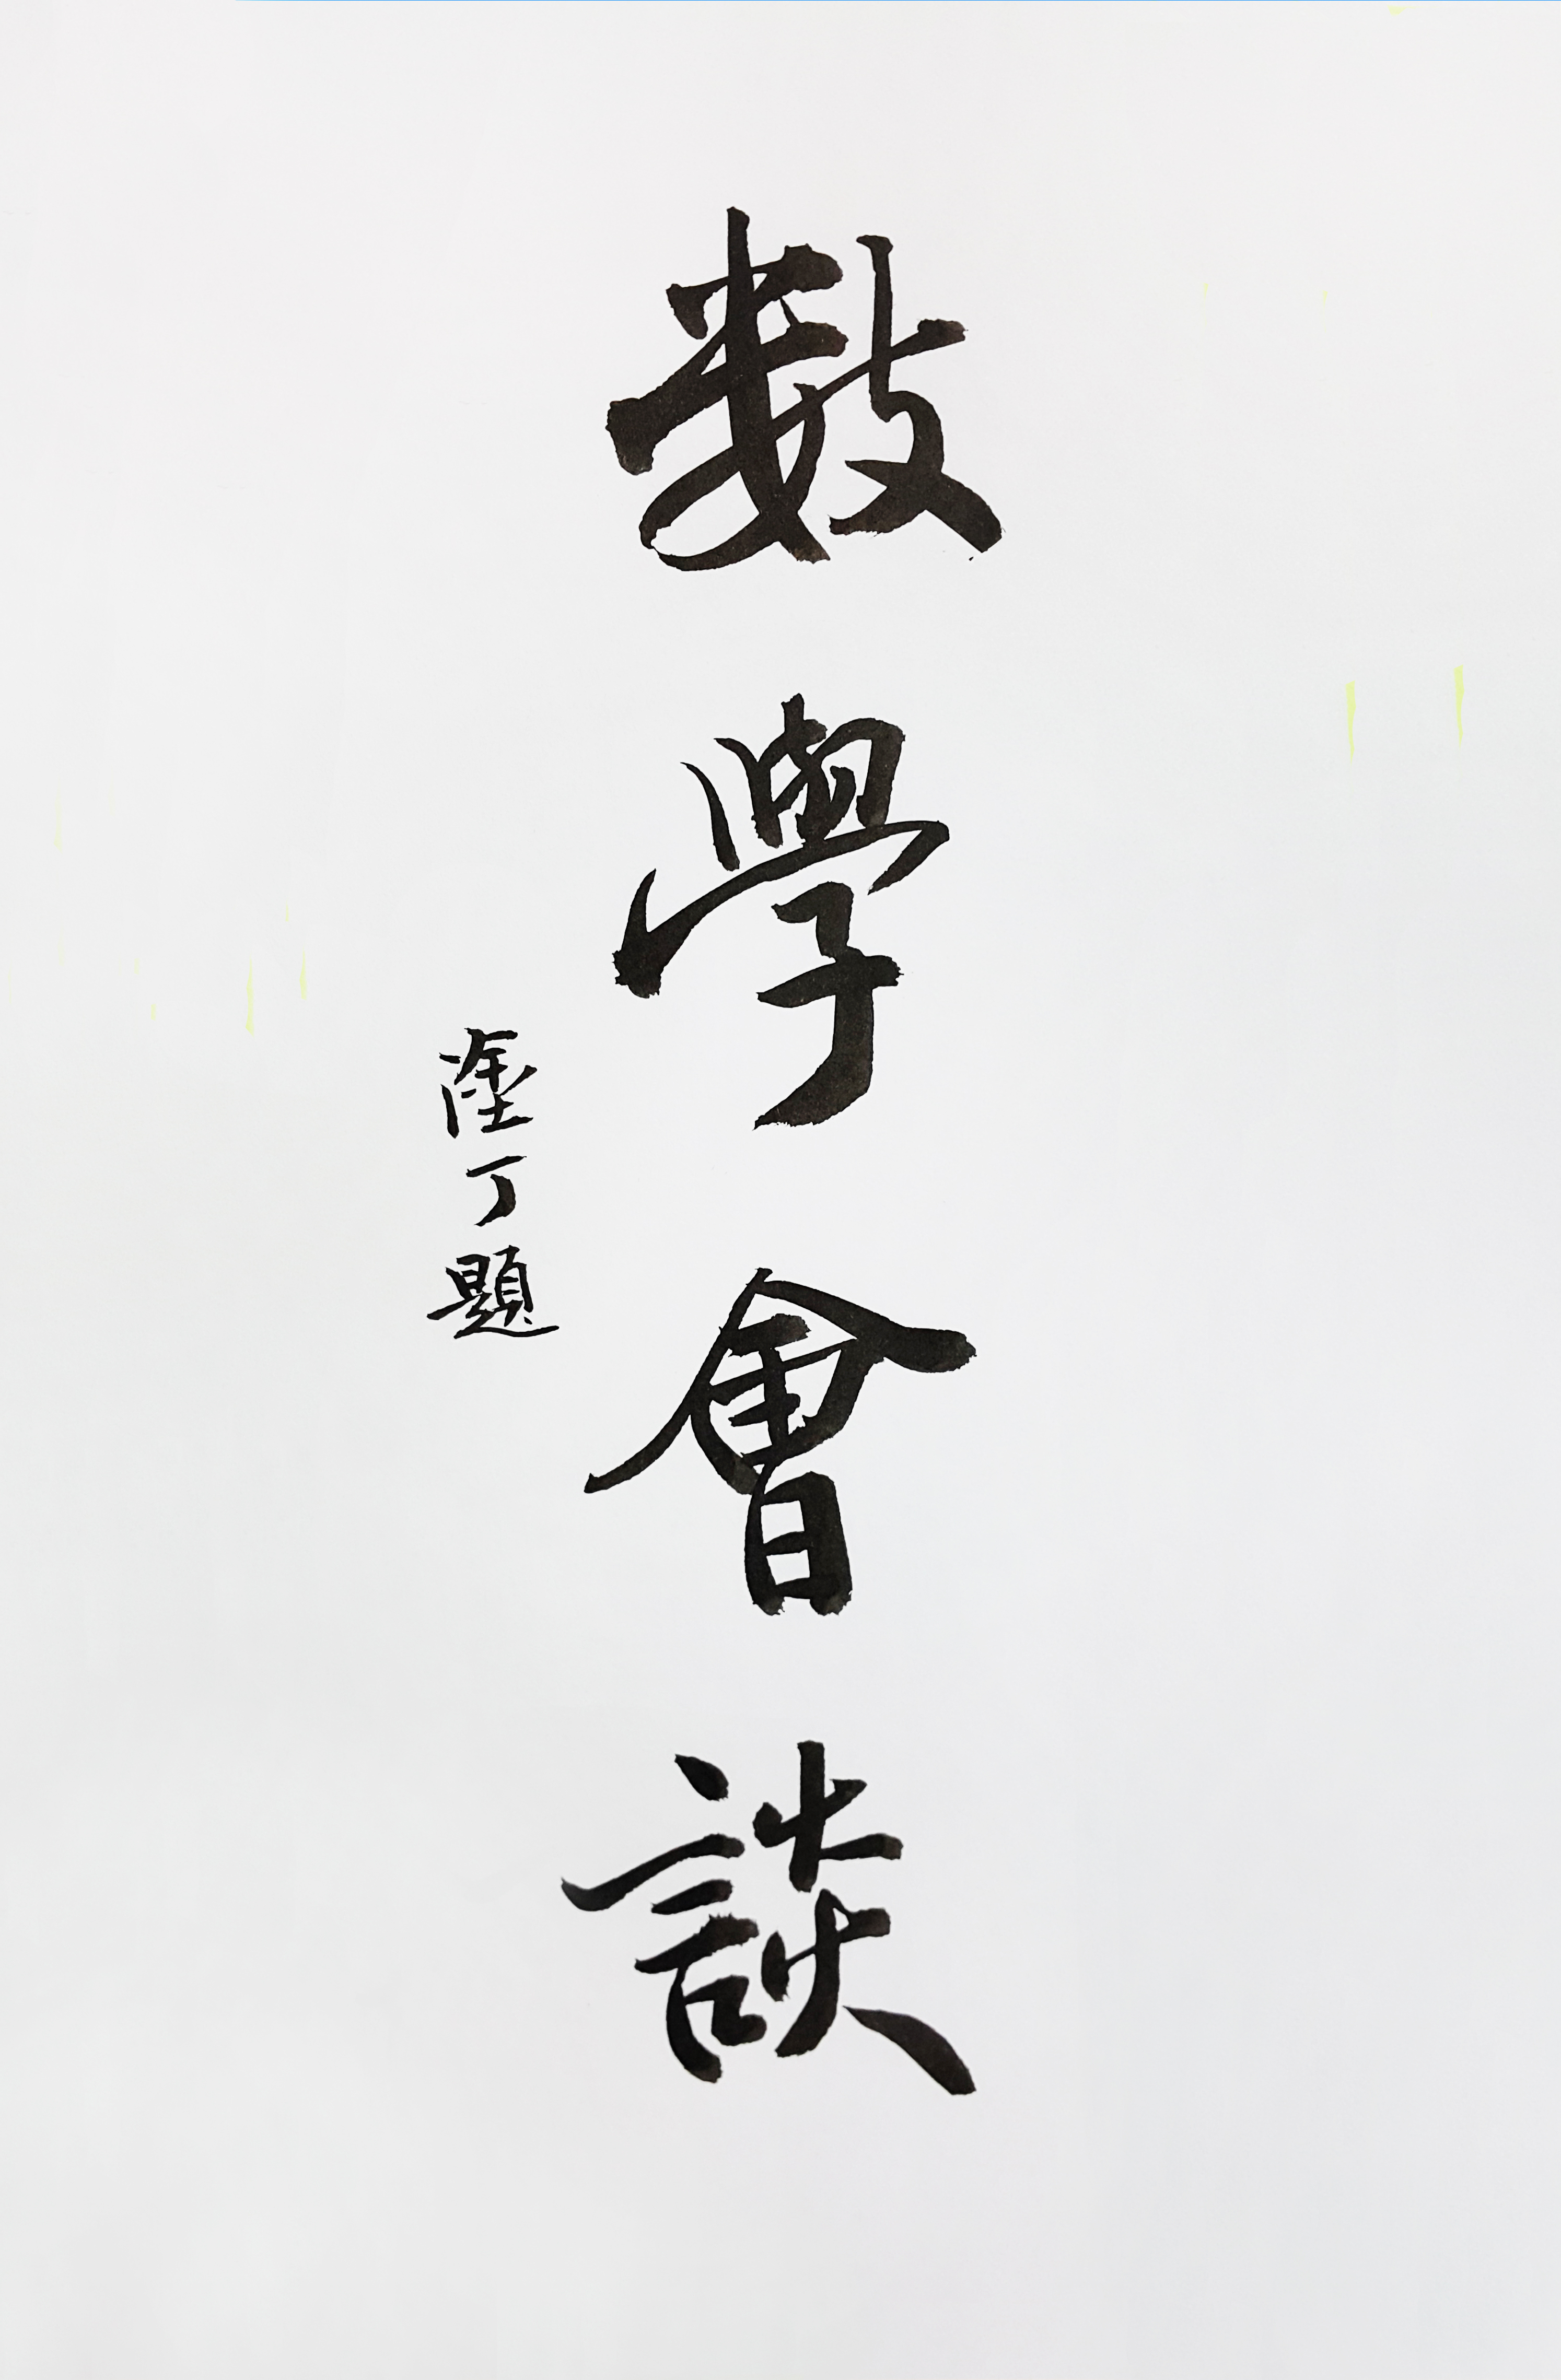 数學會談
塗丁題